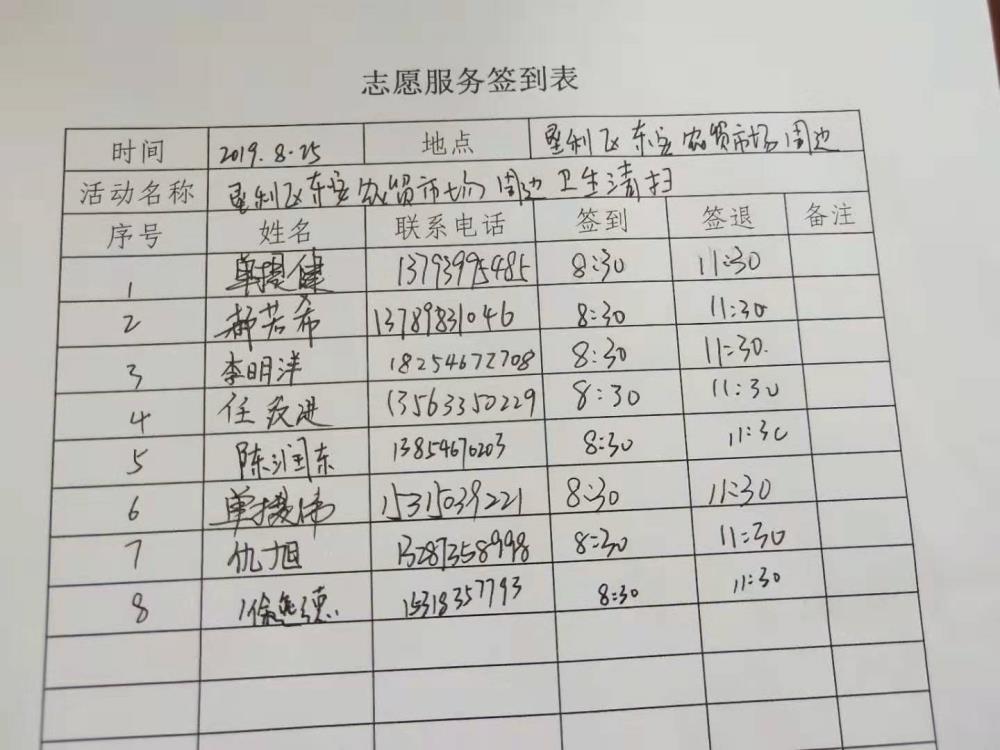 志愿服务签到表
时间 2019.8.25 地点 垦利区东安农贸市场周边
活动名称 垦利区东安农贸市场周边卫生清扫
序号 姓名 联系电话 签到 签退 备注
1 单提健 13793995485 8:30 11:30
2 郝若希 13789831046 8:30 11:30
3 李明洋 18254672708 8:30 11:30.
4 任孜进 13563350229 8:30 11:30
5 陈润东 13854670203 8:30 11:30
6 单 伟 15315039221 8:30 11:30
7 仇旭 13287358998 8:30 11:30
8 徐 德 15318357793 8:30 11:30